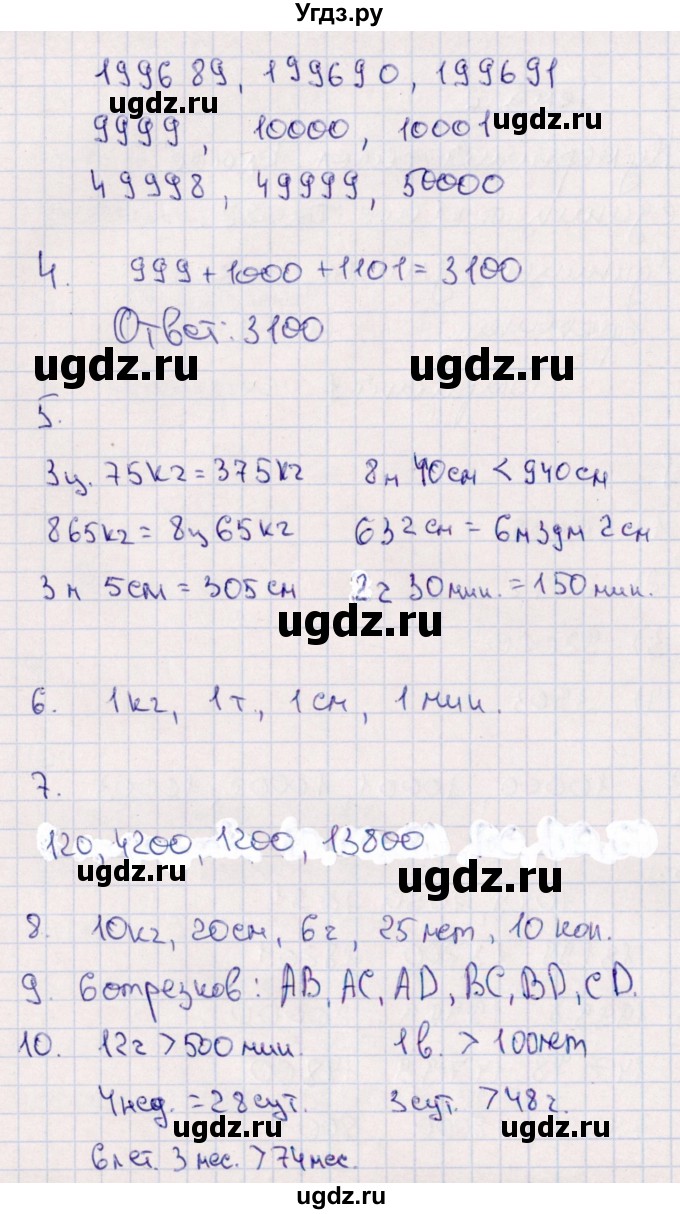 Угдз.ру
199689, 199690, 199691
ugdz.ru ugdz.ru
9999, 10000, 10001
49998, 49999, 50000
4. 999 + 1000 + 1101 = 3100
Ответ: 3100
ugdz.ru ugdz.ru
5.
3ц. 75кг = 375кг 8м 40см < 940см
865кг = 8ц 65кг 632см = 6м 3дм 2см
3м 5см = 305см 2ч 30мин. = 150мин.
ugdz.ru
6. 1кг, 1т., 1см, 1мин.
7.
120, 4200, 1200, 13800
ugdz.ru ugdz.ru
8. 10кг, 20см, 6г, 25лет, 10коп.
9. 6 отрезков: AB, AC, AD, BC, BD, CD.
10. 12ч > 500мин. 1в. > 100лет
4нед. = 28сут. 3сут. > 48ч.
ugdz.ru ugdz.ru
6лет. 3мес. > 74мес.
ugdz.ru